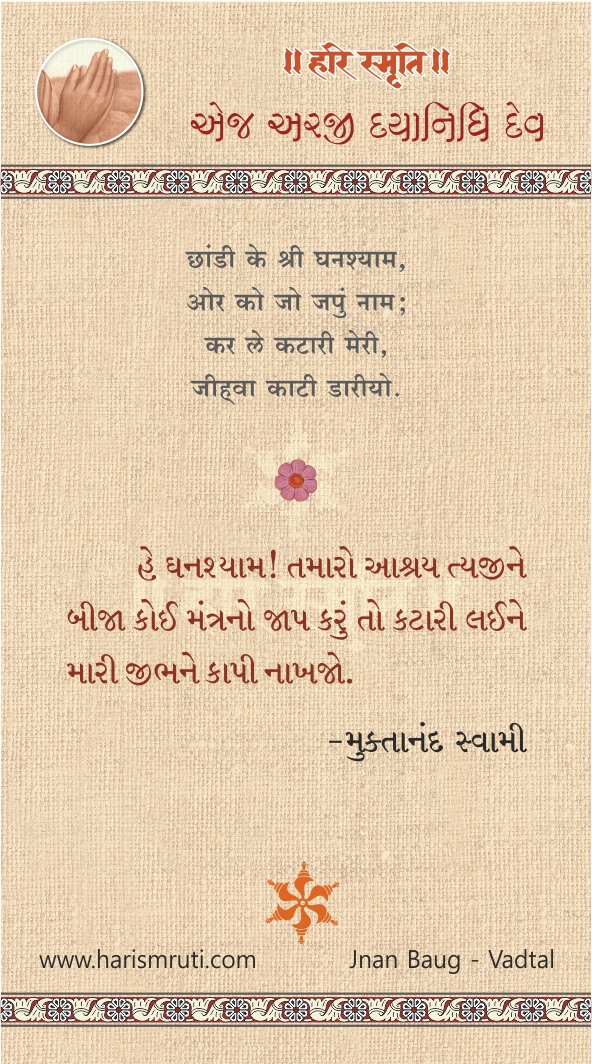 ॥ हरि स्मृति ॥
એજ અરજી દયાનિધિ દેવ
छांडी के श्री घनश्याम,
ओर को जो जपुं नाम;
कर ले कटारी मेरी,
जीह्वा काटी डारीयो.
હે ઘનશ્યામ! તમારો આશ્રય ત્યજીને
બીજા કોઈ મંત્રનો જાપ કરું તો કટારી લઈને
મારી જીભને કાપી નાખજો.
-મુક્તાનંદ સ્વામી
www.harismruti.com Jnan Baug - Vadtal